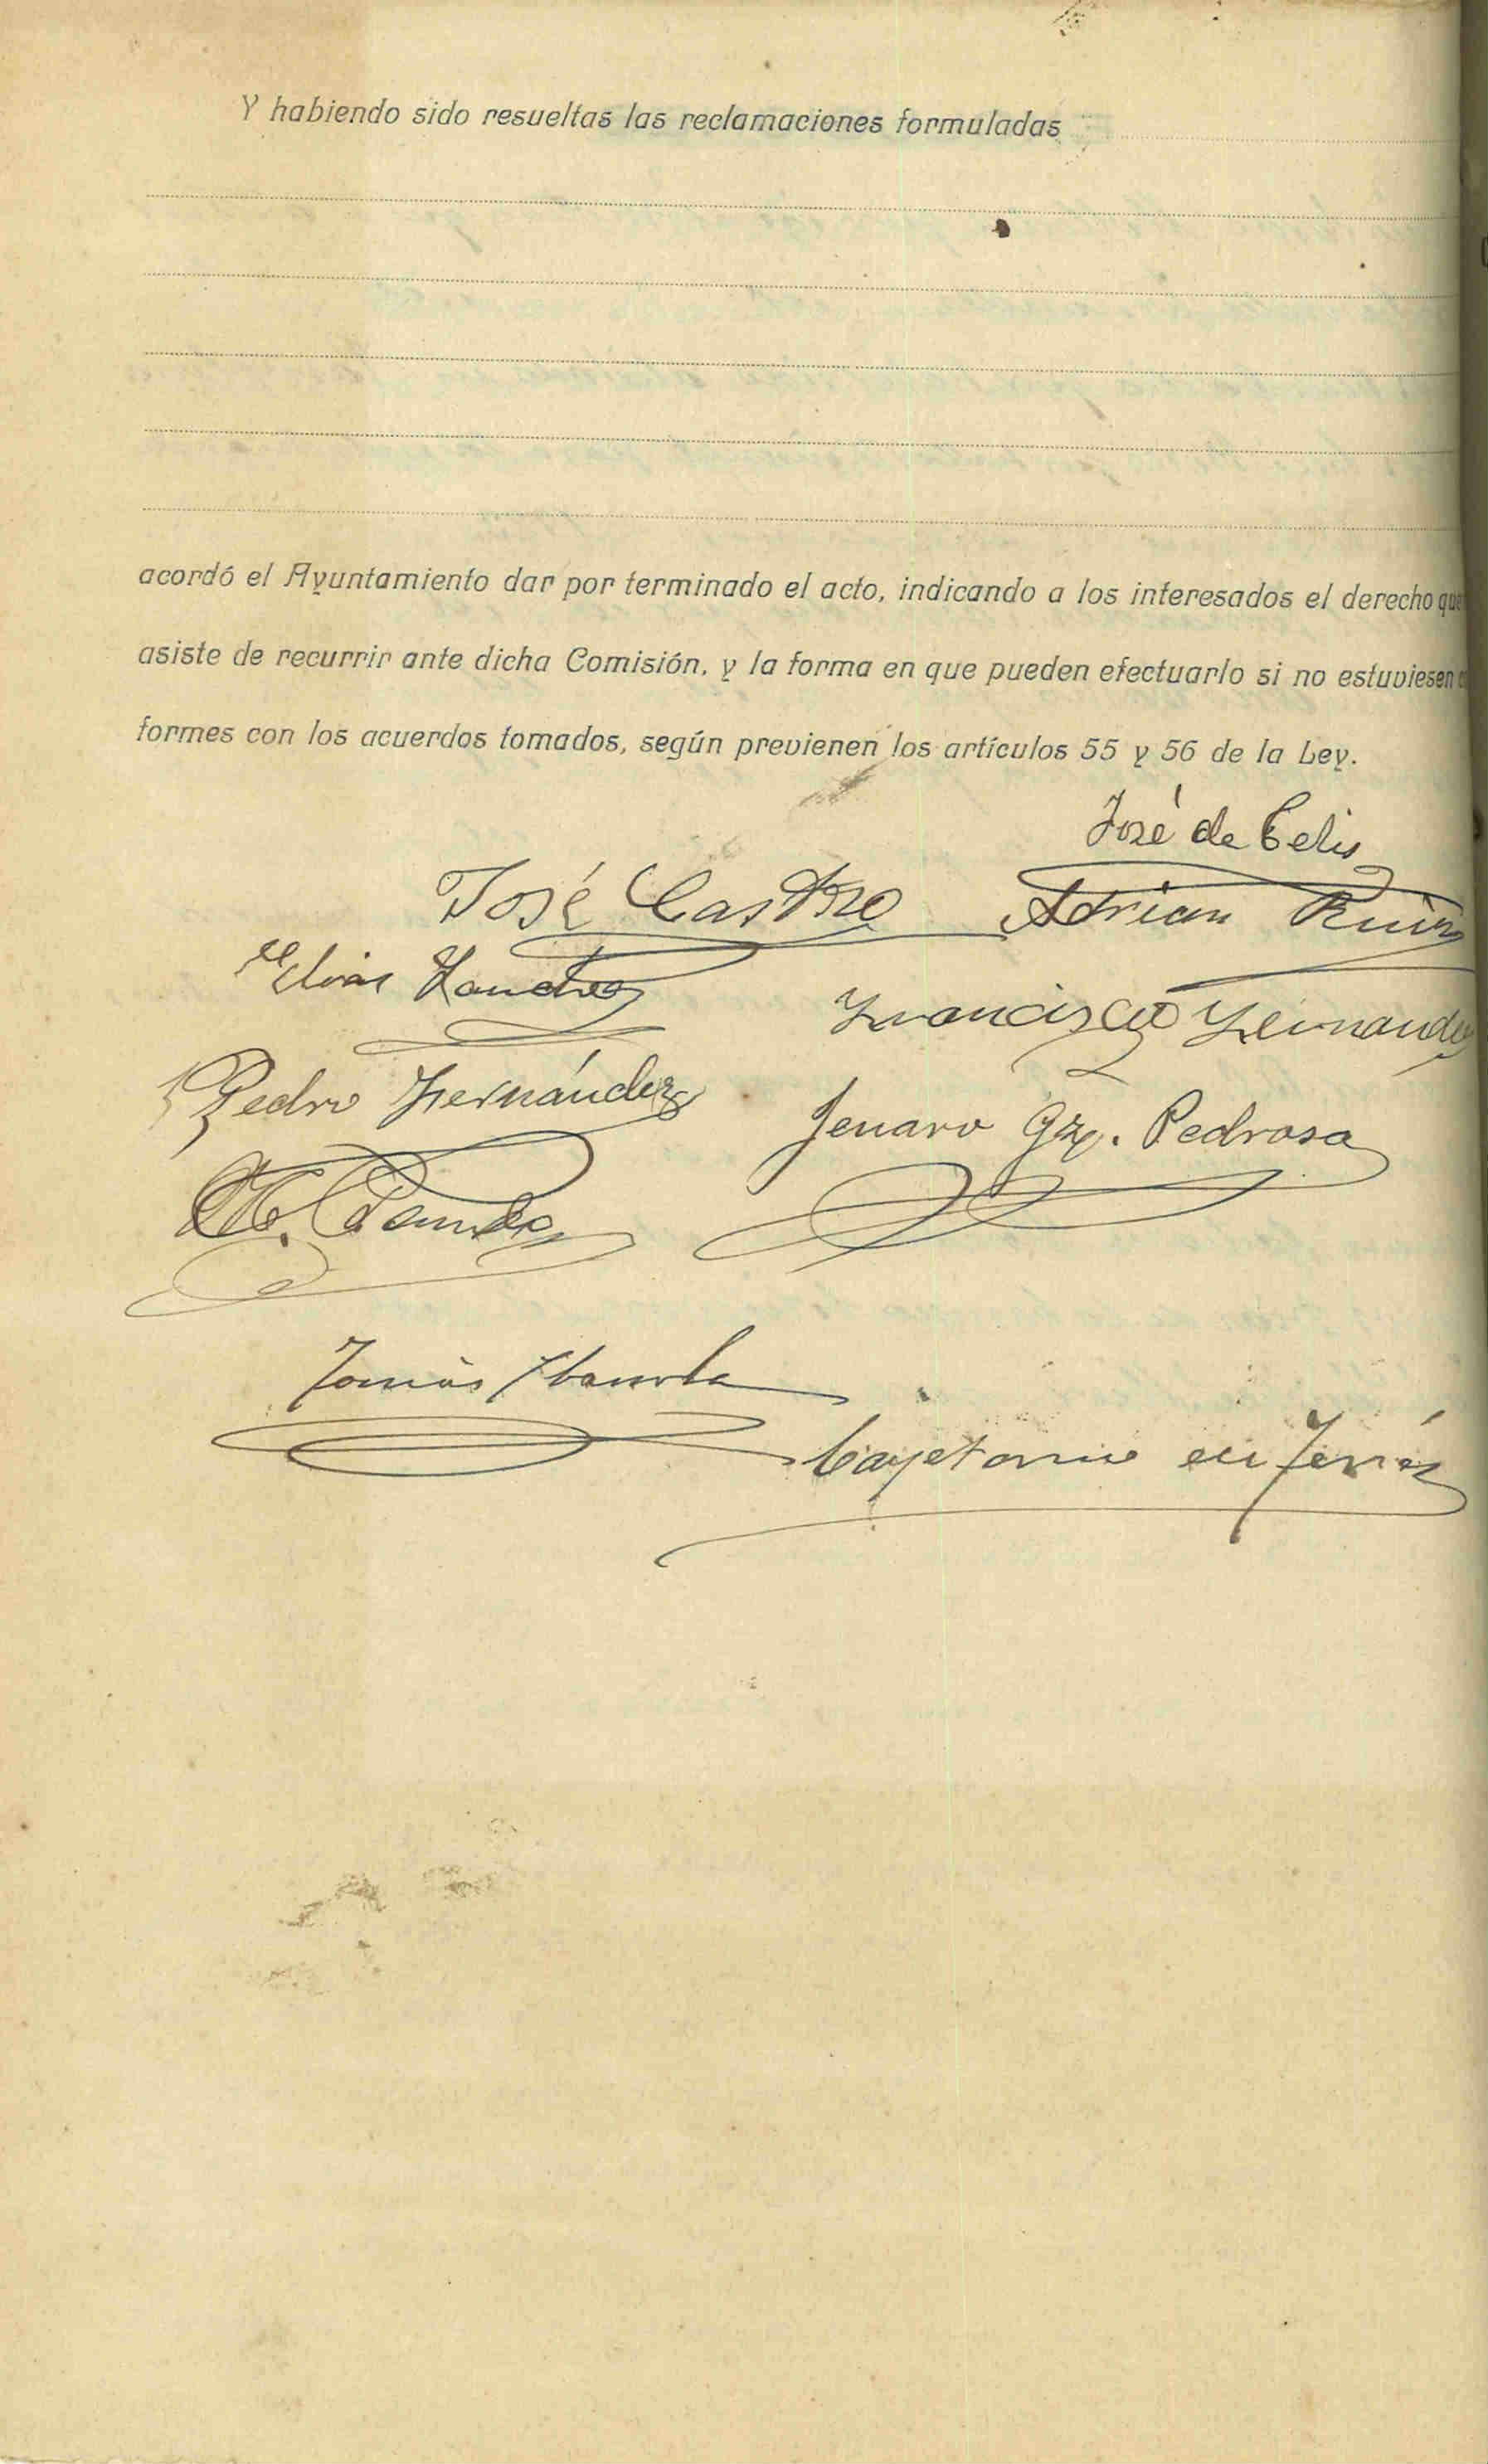 Y habiendo sido resueltas las reclamaciones formuladas
acordó el Ayuntamiento dar por terminado el acto, indicando a los interesados el derecho que
asiste de recurrir ante dicha Comisión, y la forma en que pueden efectuarlo si no estuviesen
formes con los acuerdos tomados, según previenen los artículos 55 y 56 de la Ley.
José de Celis
José Castro Adrian Ruiz
Elias Sanchez
Francisco Fernandez
Pedro Fernández
Jenaro Gz. Pedrosa
Tomás
Cayetano